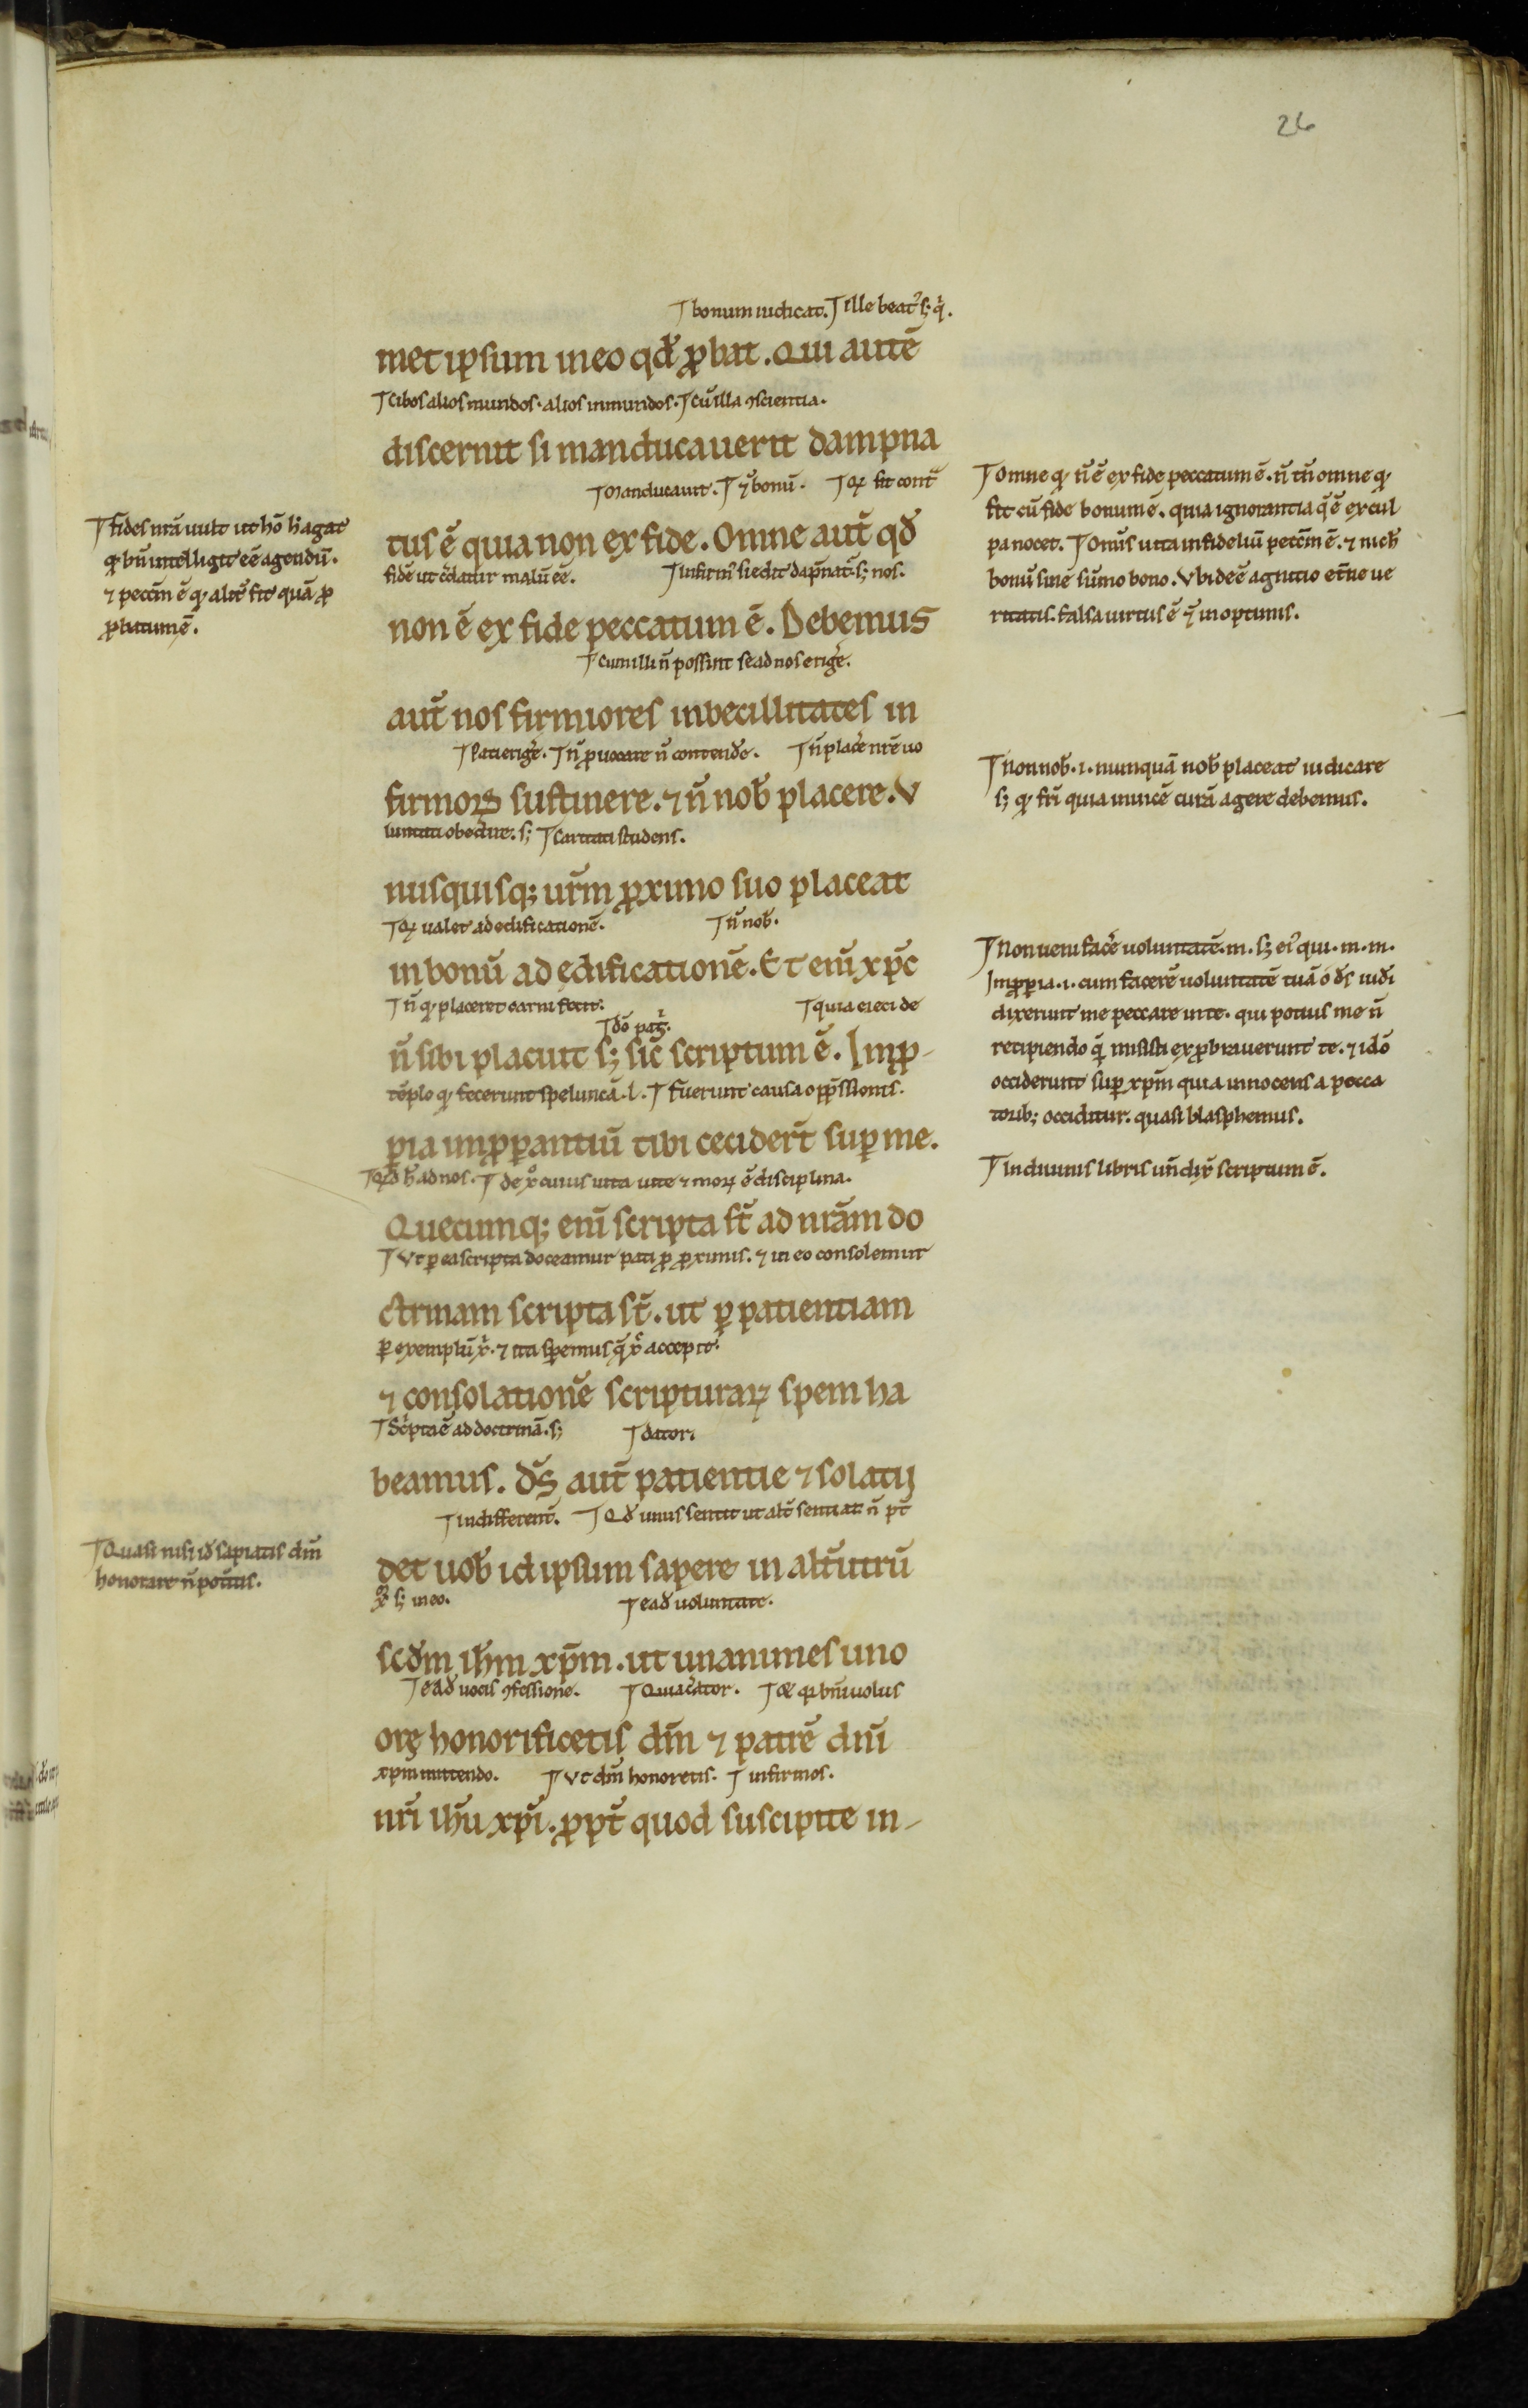 26
bonum iudicat. ille beat᷒ s; q̇.
met ipsum in eo qđ ꝓbat. Qui autē
cibos alios mundos. alios inmundos. cū illa ꝯscientia.
discernit si manducauerit dampna
Manducauit. ⁊̄ bonū. Qꝛ fit cont̄
tus ē quia non ex fide. Omne aut̄ qđ
fidē ut c̄datur malū eē. infirm᷒ si edit dāpnat᷒. s; nos.
non ē ex fide peccatum ē. Debemus
Cum illi n̄ possint se ad nos eriḡe.
aut̄ nos firmiores inbecillitates in
Pati eriḡe. n̄ ꝓuocare n̄ contend̄e. n̄ plac̄e nr̄e uo
firmoꝝ sustinere. ⁊ n̄ nob̄ placere. V
luntati obedire. s; Caritati studens.
nusquisq; ur̄m ꝓximo suo placeat
Qꝛ ualet ad edificationē. n̄ nob̄.
in bonū ad ędificationē. Et enī xp̄c
n̄ q᷒ placeret carni fecit. quia eieci de
dō pat̄.
n̄ sibi placuit s; sic̄ scriptum ē. Inꝓ-
tēplo q᷒ fecerunt speluncā. l. fuerunt causa opp̄ssionis.
ꝑia inꝓꝑantiū tibi cecider̄t suꝑ me.
Qđ h̄ ad nos. de xͦ cuius uita uite ⁊ moꝝ ē disciplina.
Quecumq; enī scripta st̄ ad nr̄am do
Vt ꝑ ea scripta doceamur pati ꝓ ꝓximis. ⁊ in eo consolemur
ctrinam scripta st̄. ut ꝑ patientiam
ꝑ exemplū xͥ. ⁊ ita speremus q̄ xͨ accepit.
⁊ consolationē scripturaꝝ spem ha
Sc̄pta ē ad doctrinā. s; dator.
beamus. d̄s aut̄ patientie ⁊ solatij
indifferent̄. Qđ unus sentit ut alt̄ sentiat n̄ p̄t
det uob̄ id ipsum sapere in alt̄utrū
s; in eo. eađ uoluntate.
scđm ih̄m xp̄m. ut unanimes uno
eađ uocis ꝯfessione. Qui c̄ator. bn̄iuolus
orę honorificetis dm̄ ⁊ patrē dnī
xpm mittendo. Vt dm̄ honoretis. infirmos.
nr̄i ih̄u xp̄i. ꝓpt̄ quod suscipite in-
fides nr̄a uult ut hō h̄ agat
q᷒ bn̄ intelligit eē agendū.
⁊ peccm̄ ē q᷒ alit̄ fit quā ꝓ
ꝓbatum ē.
Quasi nisi iđ sapiatis dm̄
honorare n̄ potitis.
Omne q᷒ n̄ ē ex fide peccatum ē. n̄ tn̄ omne q᷒
fit cū fide bonum ē. quia ignorantia q̄ ē ex cul
pa nocet. Omīs uita infideliū petcm̄ ē. ⁊ nich̄
bonū sine sūmo bono. Vbi deē agnitio et̄ne ue
ritatis. falsa uirtus ē ⁊̄ in optimis.
Non nob̄. i. numquā nob̄ placeat iudicare
s; q᷒ frī quia inuicē curā agere debemus.
Non ueni fac̄e uoluntatē. m. s; ei᷒ qui. m. m.
Inꝓꝑia. i. cum facerē uoluntatē tuā ó d̄s iuđi
dixerunt me peccare in te. qui potius me n̄
recipiendo q̄ misisti exꝓbrauerunt te. ⁊ idō
occiderunt suꝑ xp̄m quia innocens a pecca
torib; occiditur. quasi blasphemus.
In diuinis libris un̄ dix̄ scriptum ē.